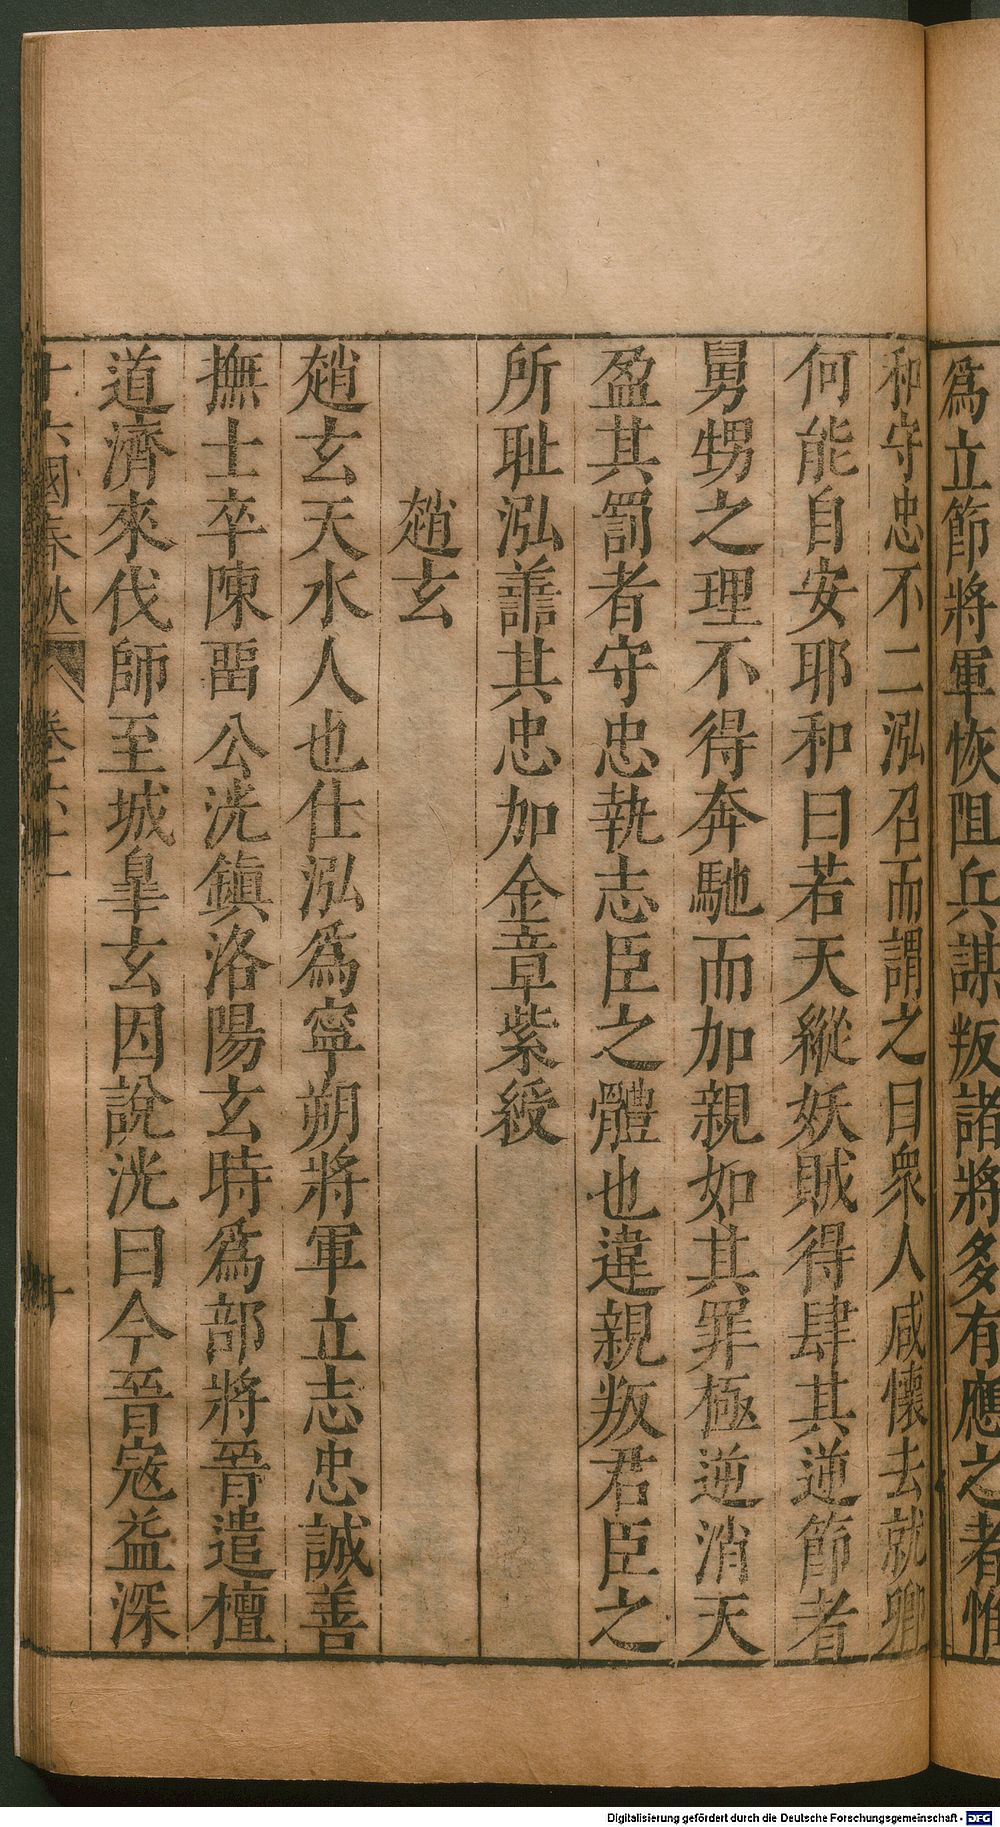 爲立節將軍恢阻兵謀叛諸將多有應之者惟
和守忠不二泓召而謂之曰衆人咸懷去就卿
何能自安耶和曰若天縱妖賊得肆其逆節者
舅甥之理不得奔馳而加親如其罪極逆消天
盈其罰者守忠執志臣之體也違親叛君臣之
所耻泓善其忠加金章紫綬
趙玄
趙玄天水人也仕泓爲寧朔將軍立志忠誠善
撫士卒陳畱公洸鎭洛陽玄時爲部將晉遣檀
道濟來伐師至城皐玄因說洸曰今晉寇益深
十六國春秋 卷六十一 十
Digitalisierung gefördert durch die Deutsche Forschungsgemeinschaft - DFG